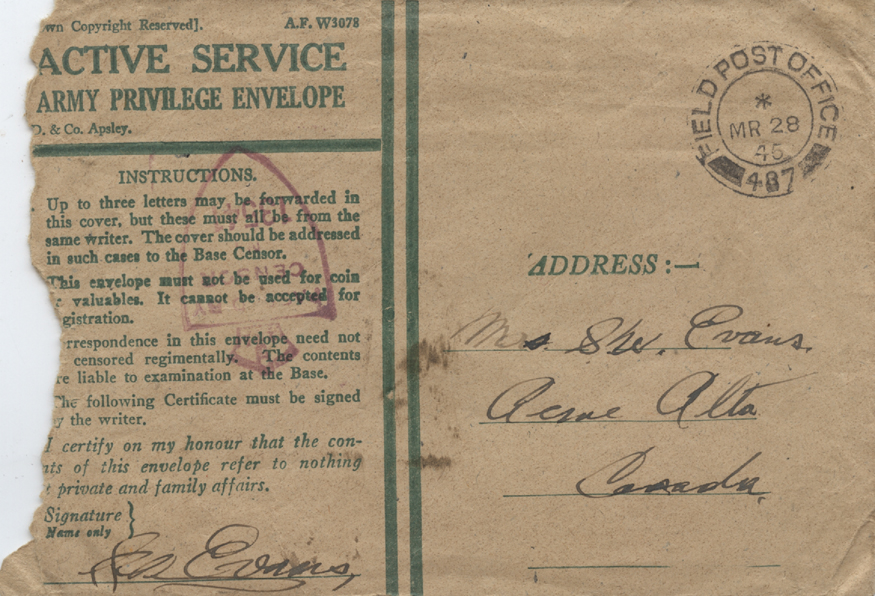 wn Copyright Reserved]. A.F. W3078
ACTIVE SERVICE
ARMY PRIVILEGE ENVELOPE
D. & Co. Apsley.
INSTRUCTIONS.
Up to three letters may be forwarded in
this cover, but these must all be from the
same writer. The cover should be addressed
in such cases to the Base Censor.
This envelope must not be used for coin
r valuables. It cannot be accepted for
gistration.
rrespondence in this envelope need not
censored regimentally. The contents
re liable to examination at the Base.
The following Certificate must be signed
y the writer.
I certify on my honour that the con-
nts of this envelope refer to nothing
t private and family affairs.
Signature }
Name only
Evans,
FIELD POST OFFICE
*
MR 28
45
487
ADDRESS :—
Mrs. Evans.
Acme Alta
Canada.
CENSOR